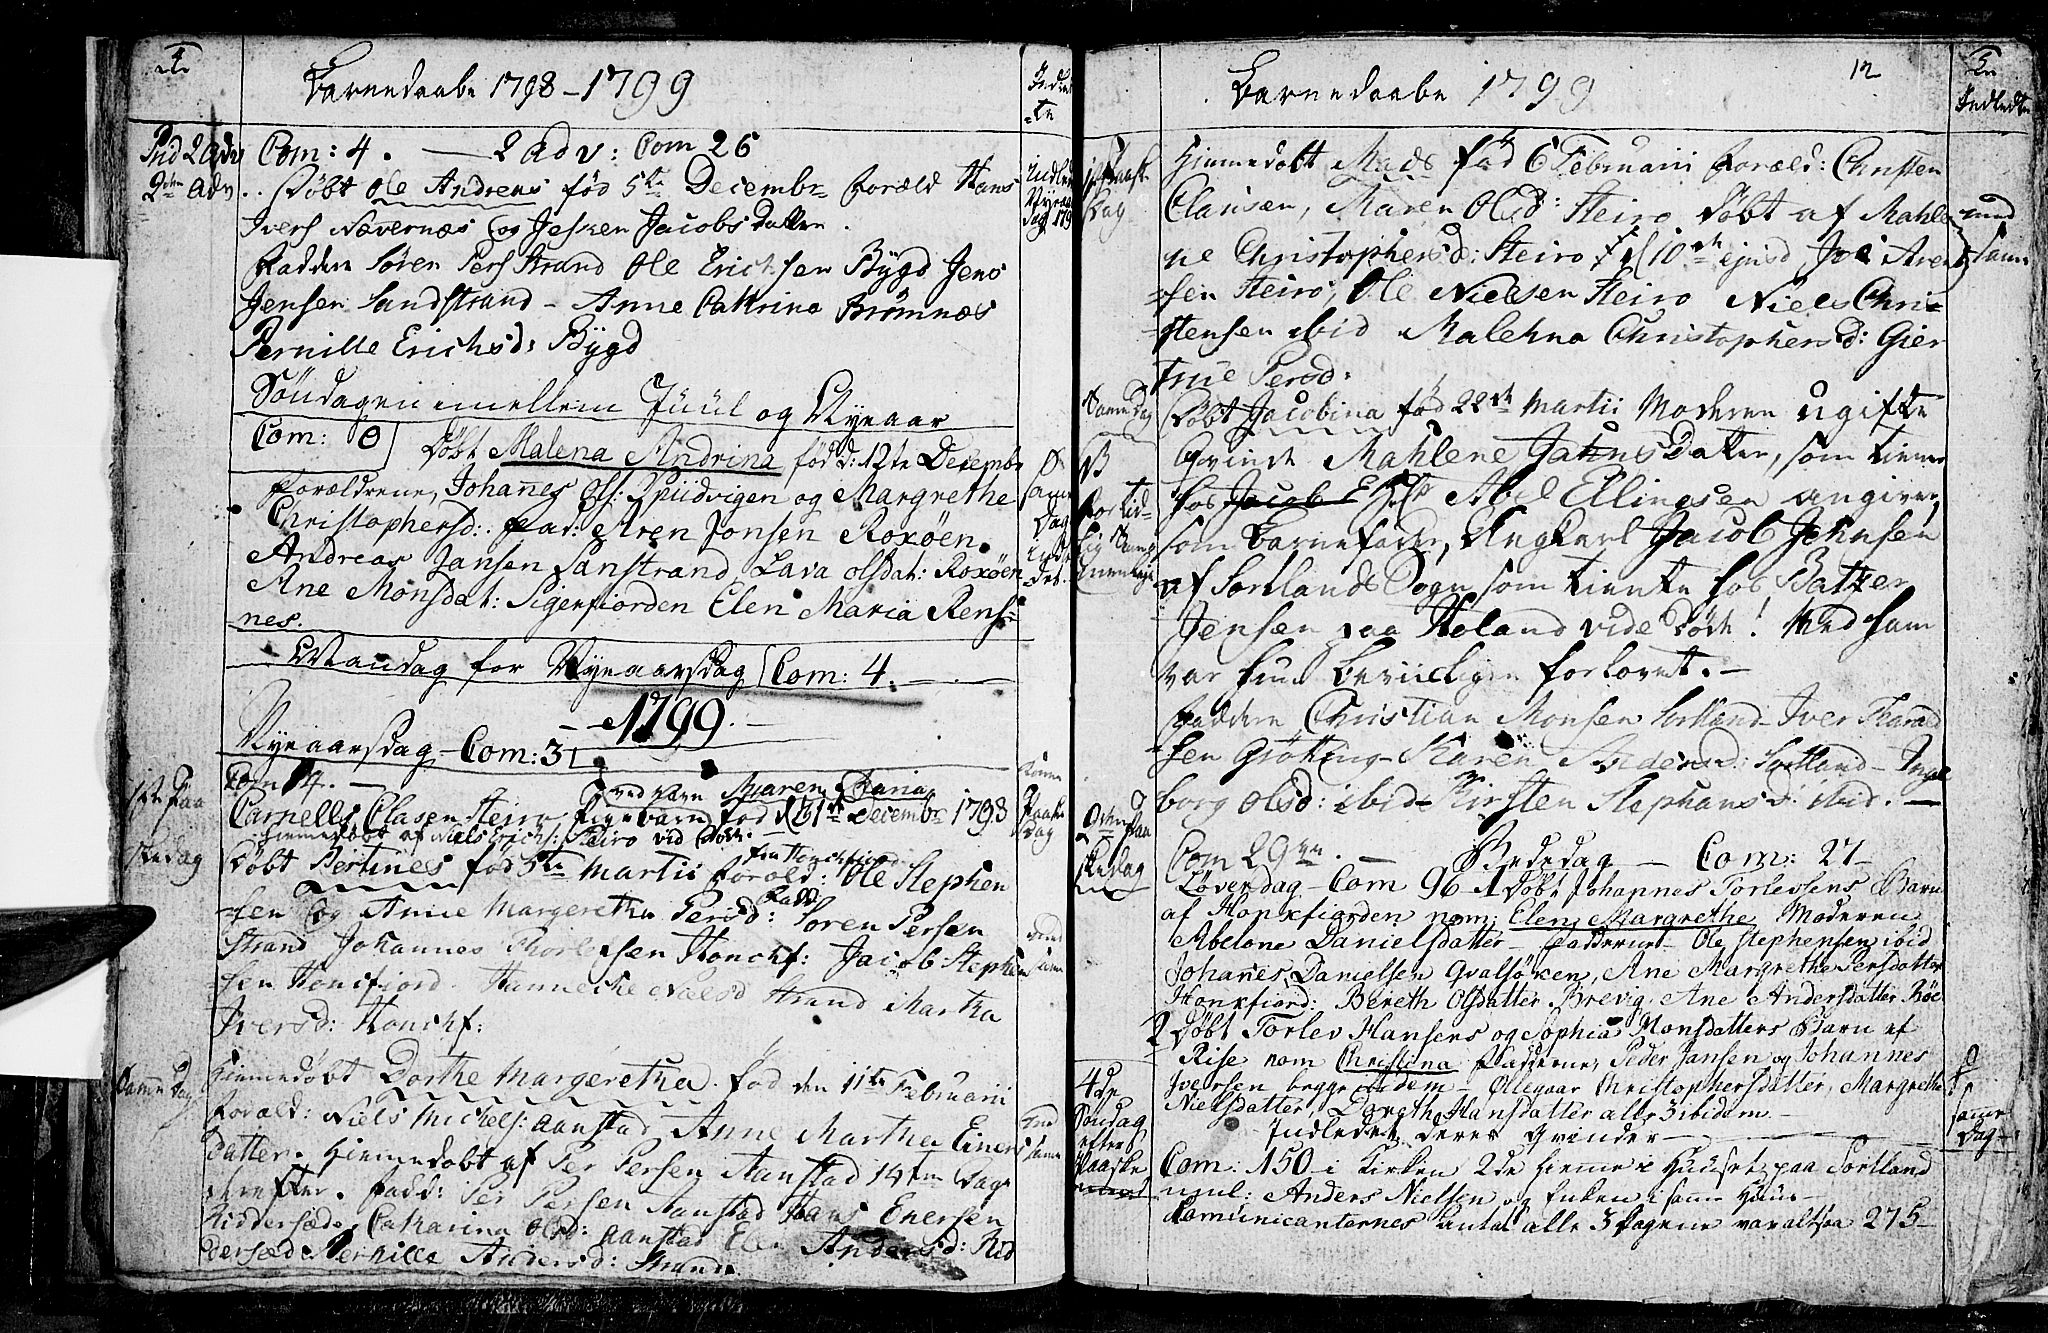 Barnedaabe 1798 – 1799
2 Adv
2den Adv
Com: 4. — 2 Adv: Com 26
Døbt Ole Andreas fød 5te Decembr Foræld Hans
Ivers Nævernæs og Jesken Jacobs Datter.
Faddere Søren Pers Strand Ole Erichsen Bygd Jens
Jensen Sandstrand – Anne Cathrina Brømnæs
Pernille Erichsd: Bygd
Søndagen imellem Juul og Nyeaar
Com: 0
Døbt Malena Andrina, fød d: 12te Decembr
Forældrene, Johannes Ols: Spiidvigen og Margrethe
Christophersd: Fad: Aren Jonsen Roxøen.
Andreas Jansen Sanstrand, Lava Olsdat: Roxøen
Ane Monsdat: Sigerfiorden Elen Maria Rens-
nes.
Mandag for Nyeaarsdag Com: 4.
1799.
Nyeaarsdag – Com: 3
1ste Paa
skedag
Com 14. —
ved navn Maren Maria
Carnells Clasen Steiro Pigebarn fød d 21de Decembr 1798
hiemmedøbt af Niels Erichs: Steiro vid Døde
Døbt Bertines fød 5te Martii Foræld: Ole Stephen
fra Honchfiord
sen og Anne Margeretha Persd: Fadd Soren Persen
Strand Johannes Thorlefsen Honchf: Jacob Stephen
sen Honcfiord. Hannecke Nielsd Strand Martha
Iversd: Honchf:
Samme Dag
Hiemmedøbt Dorthe Margeretha. fød den 11te Februarii
Foræld: Niels Michels: Aanstad Anne Martha Einers
datter. Hiemmedøbt af Per Persen Aanstad 14ten Dage
derefter. Fadd: Per Persen Aanstad Hans Enersen
Riddersæde, Catharina Olsd: Aanstad Elen Andersd: Rid
dersæde Pernille Andersd: Strand.
Barnedaabe 1799
12
5
Indledte
Hiemmedøbt Mads fød 6 Februarii Foræld: Christen
Clausen, Maren Olsd: Steiro døbt af Mahle
ne Christophersd: Steiro d 10de ejusd, Joe Aren
sen Steiro, Ole Nielsen Steiro Niels Chri-
stensen ibid Malehna Christophersd: Gier
true Persd:
Samme Dag
Døbt Jacobina fød 22de Martii Moderen ugifte
Qvinde Mahlene Jahns Datter, som tiener
hos Jacob E Abel Ellingsen angiver,
som Barnefader, Ungkarl Jacob Johnsen
af Sortlands Sogn som tiente hos Baltzer
Jensen paa Holand vide Døde! Med ham
var hun beviisligen forlovet. —
Faddere Christian Monsen Sortland – Iver
sen Grøtting – Karen Andersd: Sortland – Inge
borg Olsd: ibid – Kirsten Stephansd: ibid. —
2den Paa
skedag
Com 29. — Bededag — Com: 27
Løverdag – Com 96 – 1 Døbt Johannes Torlevsens Barn
af Honkfiorden nom: Elen Margrethe Moderen
Abelone Danielsdatter – Fadderne – Ole Stephensen ibid
Johanes Danielsen Qvalsöken, Ane Margrethe Persdatter
Honkfiord: Bereth Olsdatter Brevig. Ane Andersdatter Röe
2 Døbt Torlev Hansens og Sophia Monsdatters Barn af
Rise nom Christina Fadderne, Peder Jansen og Johannes
Iversen begge ibidem – Ollegaar Christophersdatter, Margrethe
Nielsdatter, Dorethe Hansdatter alle 3 ibidem —
Indledet deres Qvinder —
samme
dag
4de
Søndag
efter
Paaske
Com: 150 – i Kirken 2de hiemme i Huuset paa Sortland
nml: Anders Nielsen og Enken i samme Huus –
Comunicanternes Antal alle 3 dagene var altsaa 275 –